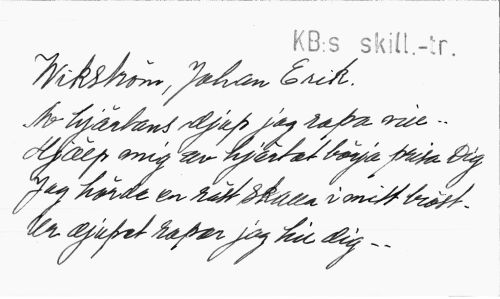 KB:s skill.-tr.
Wikström, Johan Erik.
Av hjärtans djup jag ropa vill..
Hjälp mig av hjärtat börja prisa Dig
Jag hörde en röst skalla i mitt bröst-
Ur djupet ropar jag till dig --